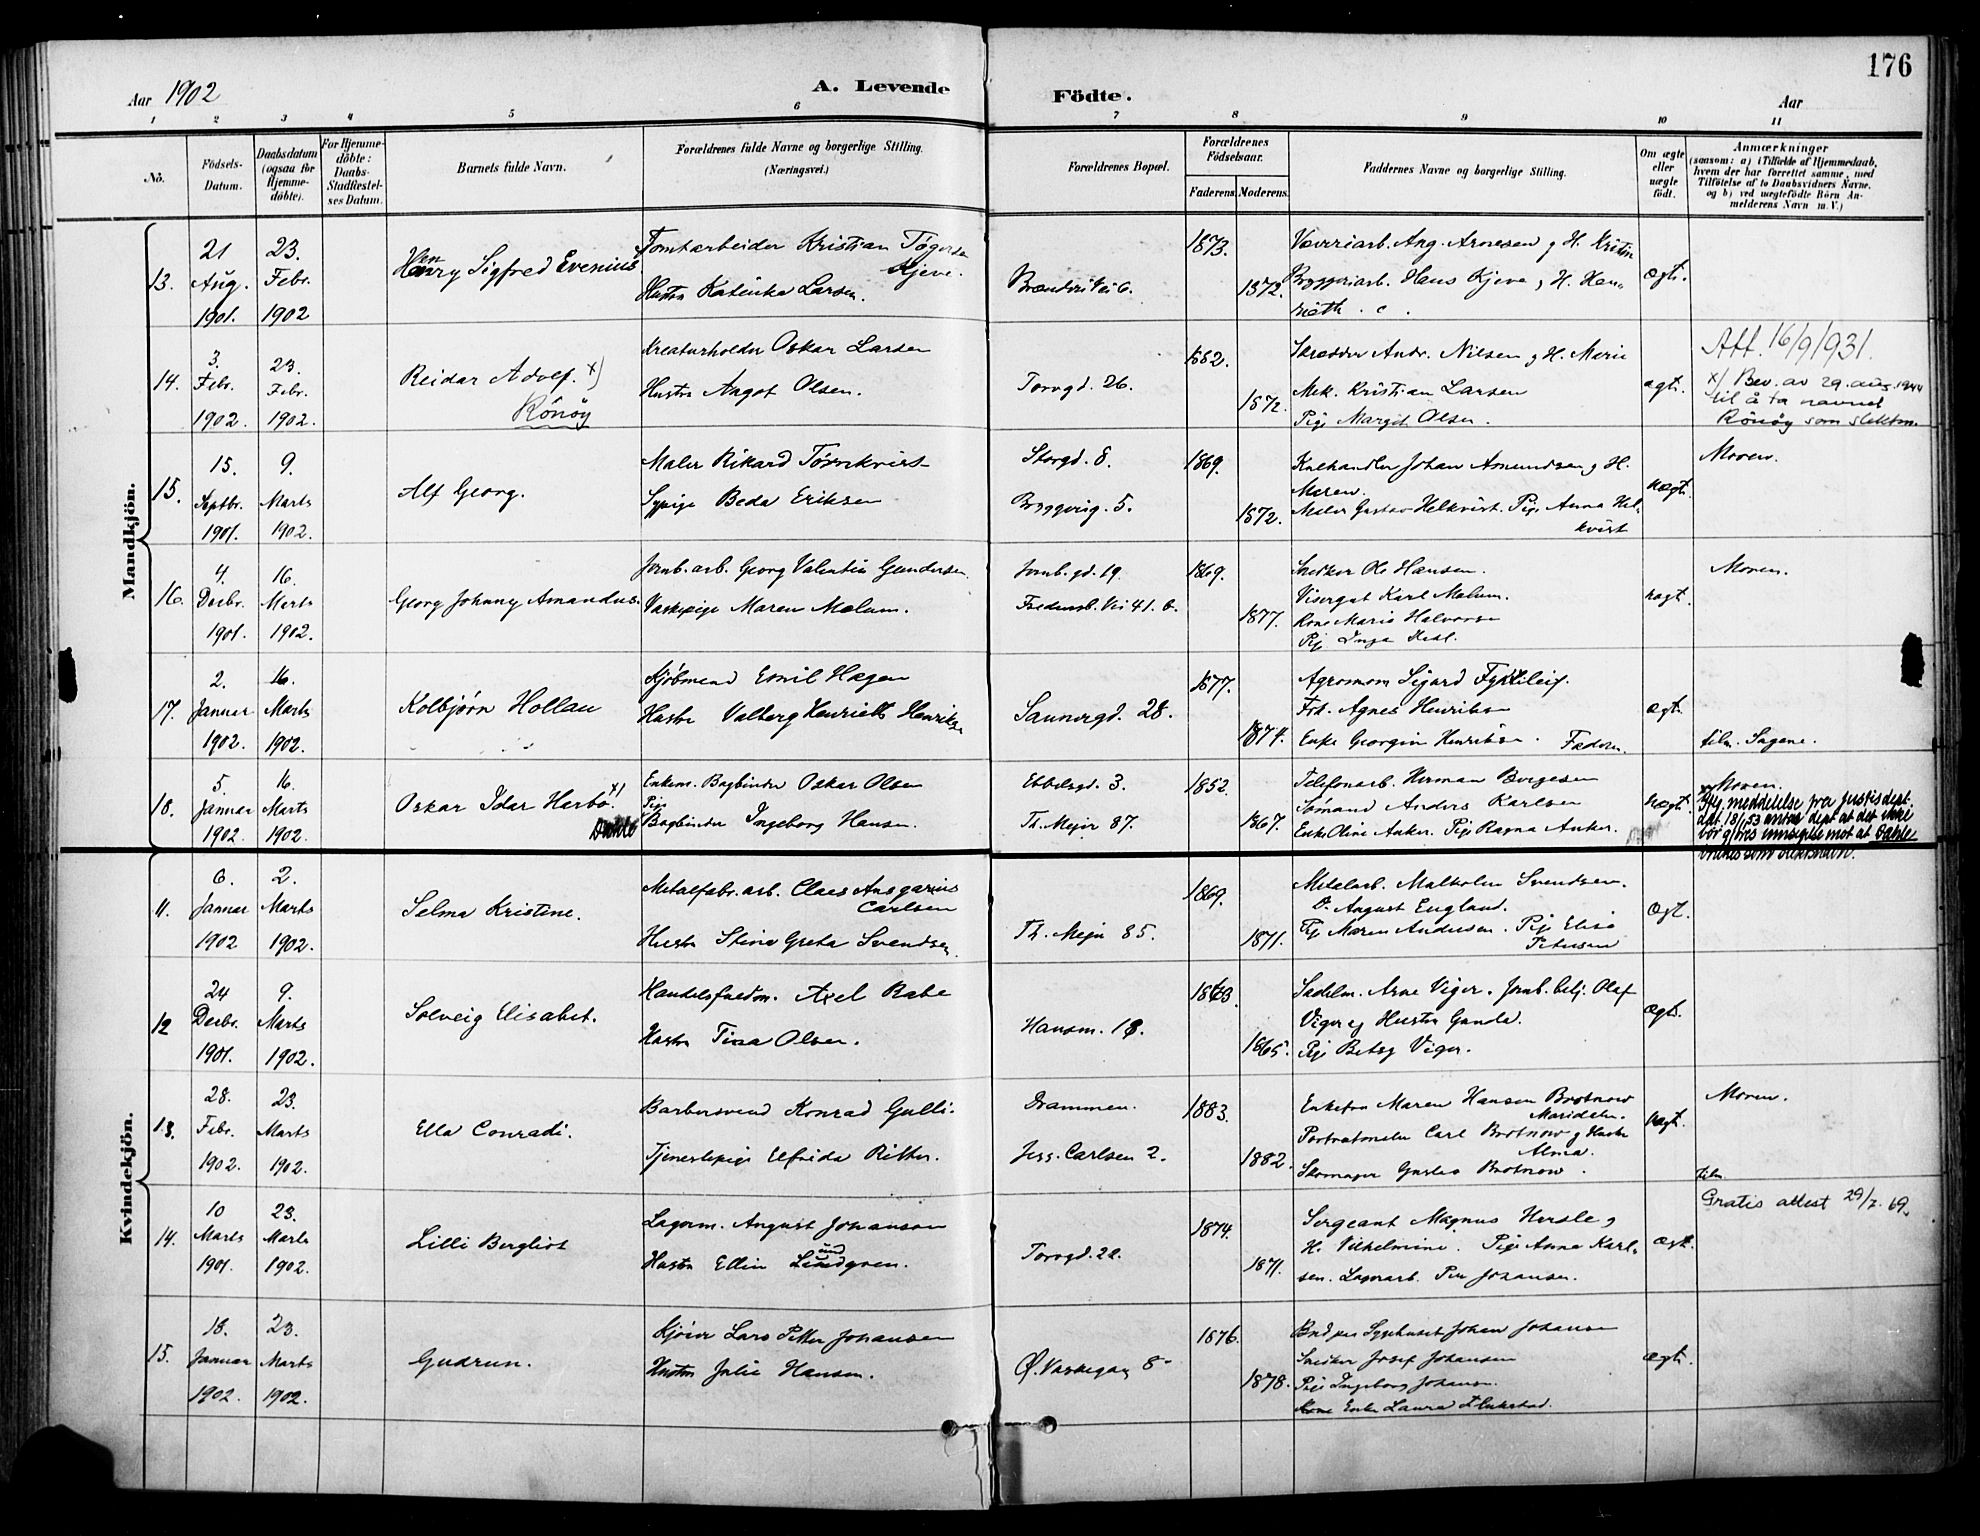 176
Aar 1902
A. Levende
Födte.
Aar
1 2 3 4 5 6 7 8 9 10 11
No.
Födsels-
Datum.
Daabsdatum
(ogsaa for
Hjemme-
döbte).
For Hjemme-
döbte:
Daabs-
Stadfæstel-
ses Datum.
Barnets fulde Navn.
Forældrenes fulde Navne og borgerlige Stilling.
(Næringsvei.)
Forældrenes Bopæl.
Forældrenes
Födselsaar.
Faderens. Moderens.
Faddernes Navne og borgerlige Stilling.
Om ægte
eller
uægte
födt.
Anmærkninger
(saasom: a) i Tilfælde af Hjemmedaab,
hvem der har forrettet samme, med
Tilföielse af to Daabsvidners Navne,
og b) ved uægtefödte Börn An-
melderens Navn m. V.)
Mandkjön.
13.
21
Aug.
1901.
23.
Febr.
1902
Henry Sigfred Evenius
Tomtearbeider Kristian
Kjeve.
Hustru Katinka Larsen.
1873.
1872.
Aug. Arnesen og H. Kristin
Bryggeriarb. Hans Kjeve, H. Hen-
ægt.
14.
3.
Febr.
1902.
23.
Febr.
1902.
Reidar Adolf. x)
Rönöy
Kreaturholder Oskar Larsen
Hustru Aagot Olsen.
Torvgd. 26.
1872.
Skrædder Andr. Nilsen og H. Marie
Mek. Kristian Larsen
Pige Margit Olsen.
ægt.
Att. 16/9/931.
x) Bev. av 29. aug. 1944
til å ta navnet
Rönöy som slektsn.
15.
15.
Septbr.
1901.
9.
Marts
1902.
Alf Georg.
Maler Rikard Törnkvist
Sypige Beda Eriksen
Storgd. 8.
Bryggerig. 5.
1869.
1872.
Johan Amundsen og H.
Maren.
Maler Gustav Helkvist. Pige Anna Hel-
kvist
uægt.
Moren.
16.
4.
Decbr.
1901.
16.
Marts
1902.
Georg Johnny Amandus.
Jernb. arb. Georg Valentin Gundersen.
Vaskepige Maren Malum.
Jernb. gd. 19.
Fredensb. Vei 41. b.
1869.
1877.
Snedker Ole Hansen.
Visergut Karl Malum.
Kone Marie Halvorsen
Pige Inga
uægt.
Moren.
17.
2.
Januar
1902.
16.
Marts
1902.
Kolbjørn Hollau
Kjöbmand Emil Hagen
Hustru Valborg Henriette Henriksen
Sannergd. 28.
1877.
1874.
Agronom Sigurd
Frk. Agnes Henriksen
Enke Georgine Henriksen. Faderen.
ægt.
tilm. Sagene.
18.
5.
Januar
1902.
16.
Marts
1902.
Oskar Idar Herbo. x)
Dahle
Enkem. Bogbinder Oskar Olsen
Pige
Bogbinder Ingeborg Hansen.
Ebbelsgd. 3.
Th. Meyer 87.
1852.
1867.
Telefonarb. Herman Borgesen
Sömand Anders Karlsen
Enke Oline Anker. Pige Ragna Anker.
uægt.
Moren.
x) Iflg. meddelelse fra justisdept.
dat. 13/1 53 antar dept at det ikke
bör gjöres innsigelse mot at Dahle
brukes som slektsnavn.
Kvindekjön.
11.
6.
Januar
1902
2.
Marts
1902.
Selma Kristine.
Metalfabr. arb. Claes Ansgarius
Carlsen
Hustru Stina Greta Svendsen.
Th. Mejer 85.
1869.
1871.
Metalarb. Malkolm Svendsen.
D. August England.
Pige Maren Andersen. Pige Elise
Petersen
Ægt.
12
24
Decbr.
1901.
9.
Marts
1902.
Solveig Elisabet.
Axel Rabe
Hustru Tina Olsen.
Hansm. 18.
1865.
Sadelm. Arne Viger. Jernb. betj. Olaf
Viger og Hustru Gunda.
Pige Betsy Viger.
ægt.
13.
28.
Febr.
1902.
23.
Marts
1902.
Ella Conradi.
Barbersvend Konrad Gulli.
Tjenestepige Elfrida Ritter.
Drammen.
Jess. Carlsen 2.
1883.
1882.
Enkefru Maren Hansen Brotnow
Maridalen.
Portrætmaler Carl Brotnow og Hustru
Alma.
Skomager Gustav Brotnow.
uægt.
Moren.
tilm.
14.
10
Marts
1901.
23.
Marts
1902.
Lilli Bergliot
Lagerm. August Johansen
Hustru Ellin Lundgren.
und
Torvgd. 22.
1874.
1871.
Sergeant Magnus Hersle og
H. Vilhelmine. Pige Anna Karl-
sen. Lagerarb. Per Johansen.
ægt.
Gratis attest 29/7. 69.
15.
18.
Januar
1902.
23.
Marts
1902.
Gudrun.
Kjörer Lars Petter Johansen
Hustru Julie Hansen.
Ø. Vaskegang 8
1876.
1878.
Bud paa Sygehuset Johan Johansen
Snedker Josef Johansen
Pige Ingeborg Johansen.
Enke Laura
ægt.